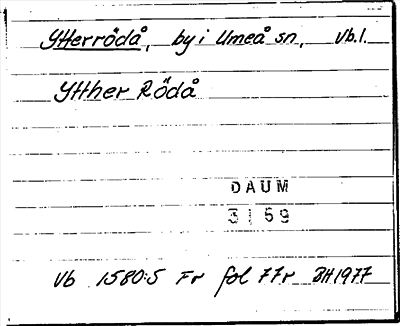 Ytterrödå, by i Umeå sn, Vb.l.
Ytther Rödå
DAUM
3159
Vb 1580:5 Fr fol 77r BH1977